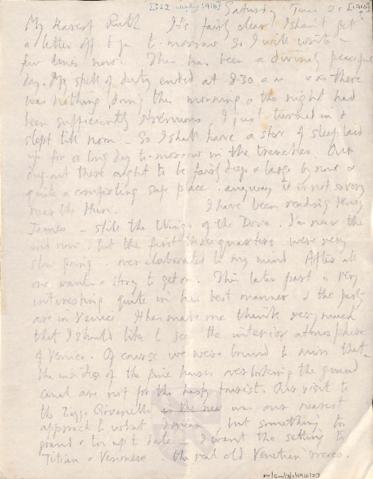 [322 written 1918] Saturday June 20 [1918]
My dearest Ruth It's fairly clear I shan't get
a letter off to you to-morrow so I will write a
few lines now. This has been a divinely peaceful
day. My spell of duty ended at 8.30 a.m. & as there
was nothing doing this morning & the night had
been sufficiently I just turned in &
slept till noon – So I shall have a store of sleep laid
up for a long day to-morrow in the trenches. Our
dug-out there ought to be fairly deep & large by now &
quite a comforting safe place. anyway it is not very
near the Hun. I have been reading Henry
James – still the Wings of the Dove. I'm near the
end now, but the first three quarters were very
slow going – over elaborated to my mind. After all
one wants a story to get on. This later part is very
interesting quite in his best manner & the parts
are in Venice. It has made me think very much
that I should like to see the interior atmosphere
of Venice. Of course we were bound to miss that.
the insides of the fine houses overlooking the grand
canal are not for the hasty tourist. Our visit to
the Giovanelli was our nearest
approach to what I mean but something too
grand & too up to date – I want the setting to
Titian & Veronese the real old Venetian